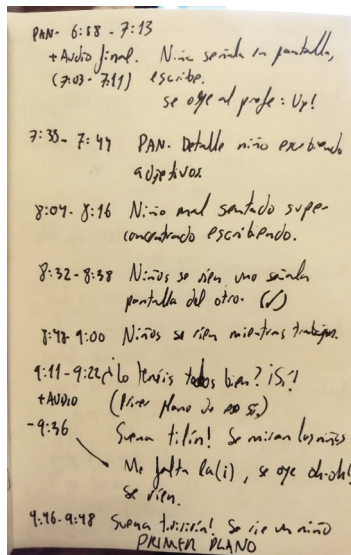 PAN. 6:58 - 7:13
+ Audio final. Niño señala en pantalla,
(7:03 - 7:11) escribe.
se oye al profe: Uy!
7:35 - 7:44 PAN. Detalle niño escribiendo
adjetivos.
8:04 - 8:16 Niño mal sentado super-
concentrado escribiendo.
8:32 - 8:38 Niños se ríen, uno señala
pantalla del otro. (✓)
8:48 - 9:00 Niños se ríen mientras trabajan.
9:11 - 9:22 ¿Lo tenéis todos bien? ¡Sí!
+ AUDIO (Primer plano de sí)
- 9:36 Suena tilín! Se miran los niños
Me falta la (i), se oye oh-oh!
se ríen.
9:46 - 9:48 Suena tiririrín! Se ríe un niño
PRIMER PLANO